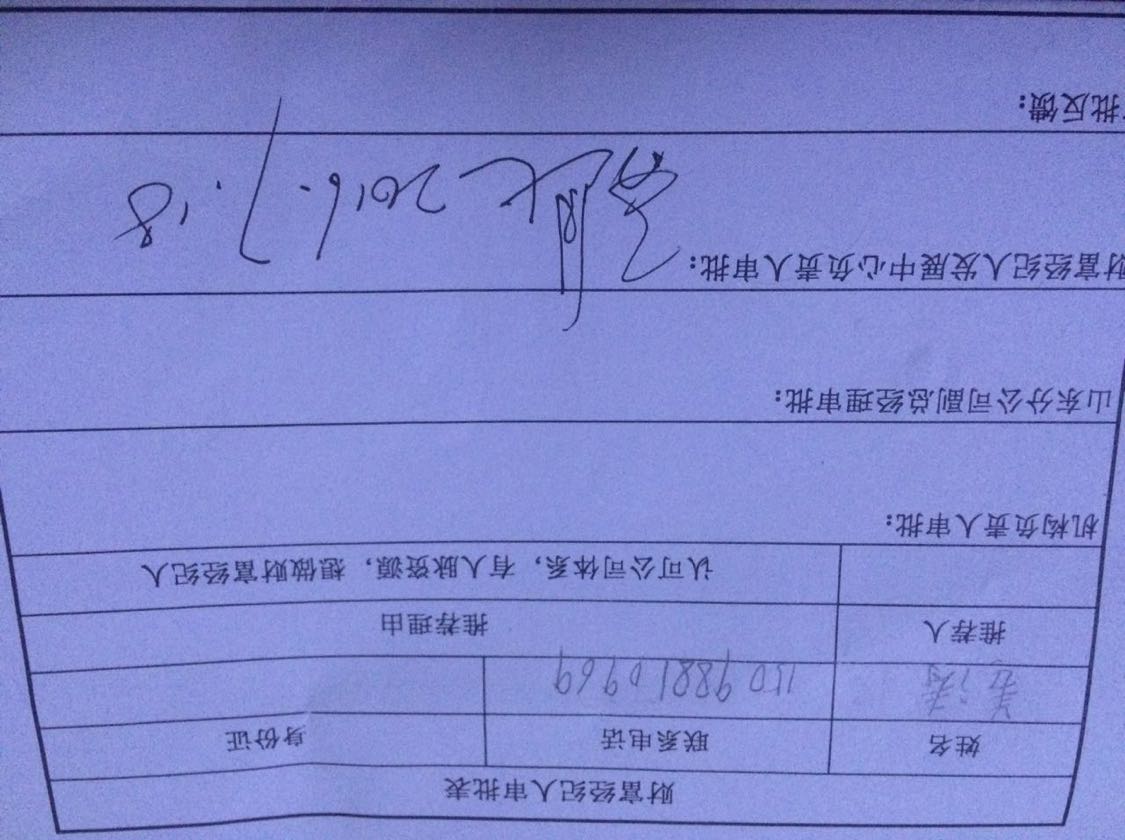 财富经纪人审批表
姓名 联系电话 身份证
姜涛 15098810969
推荐人 推荐理由
认可公司体系，有人脉资源，想做财富经纪人
机构负责人审批：
山东分公司副总经理审批：
财富经纪人发展中心负责人审批：
2016.7.18
批反馈：